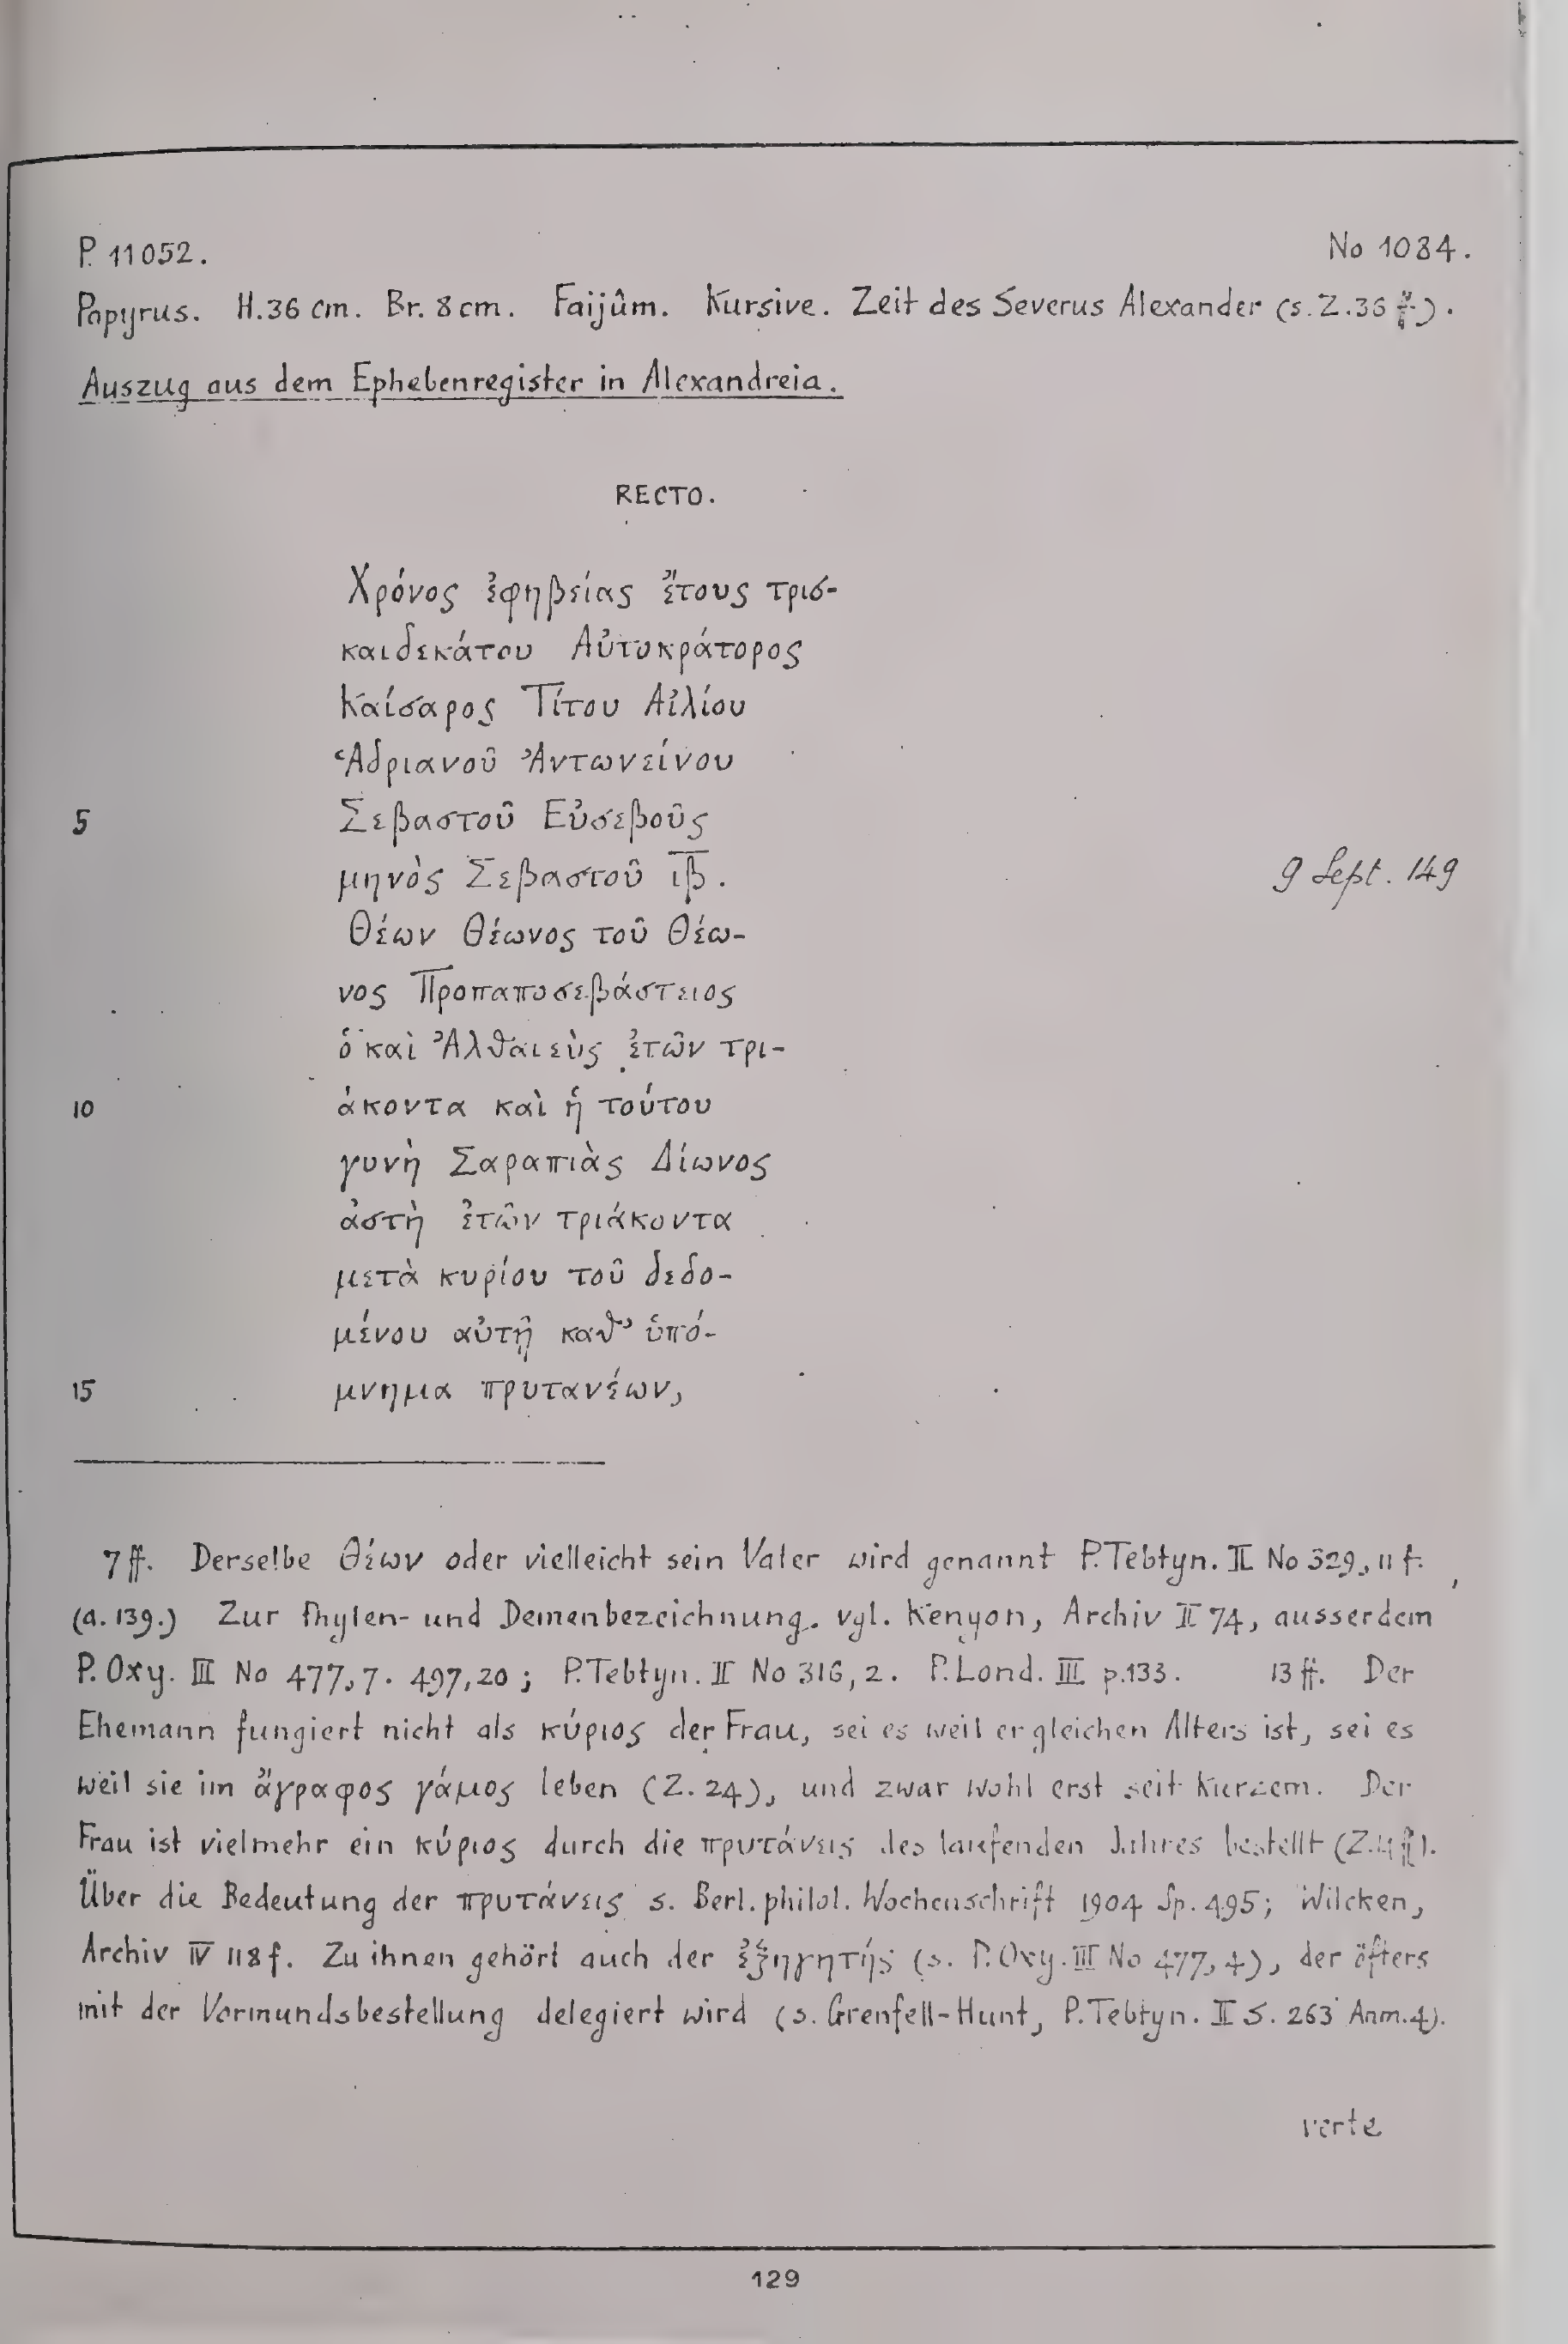 P. 11052. No 1084.
Papyrus. H. 36 cm. Br. 8 cm. Faijûm. Kursive. Zeit des Severus Alexander (s. Z. 36 ff.).
Auszug aus dem Ephebenregister in Alexandreia.
RECTO.
Χρόνος ἐφηβείας ἔτους τρισ-
καιδεκάτου Αὐτοκράτορος
Καίσαρος Τίτου Αἰλίου
Ἁδριανοῦ Ἀντωνείνου
5 Σεβαστοῦ Εὐσεβοῦς
μηνὸς Σεβαστοῦ ι̅β̅. 9 Sept. 149
Θέων Θέωνος τοῦ Θέω-
νος Προπαποσεβάστειος
ὁ καὶ Ἀλθαιεὺς ἐτῶν τρι-
10 άκοντα καὶ ἡ τούτου
γυνὴ Σαραπιὰς Δίωνος
ἀστὴ ἐτῶν τριάκοντα
μετὰ κυρίου τοῦ δεδο-
μένου αὐτῇ καθ’ ὑπό-
15 μνημα πρυτανέων,
7 ff. Derselbe Θέων oder vielleicht sein Vater wird genannt P. Tebtyn. II No 329, 11 f.
(a. 139.) Zur Phylen- und Demenbezeichnung. vgl. Kenyon, Archiv II 74, ausserdem
P. Oxy. III No 477, 7. 497, 20; P. Tebtyn. II No 316, 2. P. Lond. III p. 133. 13 ff. Der
Ehemann fungiert nicht als κύριος der Frau, sei es weil er gleichen Alters ist, sei es
weil sie im ἄγραφος γάμος leben (Z. 24), und zwar wohl erst seit Kurzem. Der
Frau ist vielmehr ein κύριος durch die πρυτάνεις des laufenden Jahres bestellt
Über die Bedeutung der πρυτάνεις s. Berl. philol. Wochenschrift 1904 Sp. 495; Wilcken,
Archiv IV 118 f. Zu ihnen gehört auch der ἐξηγητής (s. P. Oxy. III No 477, 4), der öfters
mit der Vormundsbestellung delegiert wird (s. Grenfell-Hunt, P. Tebtyn. II S. 263 Anm. 4).
verte
129